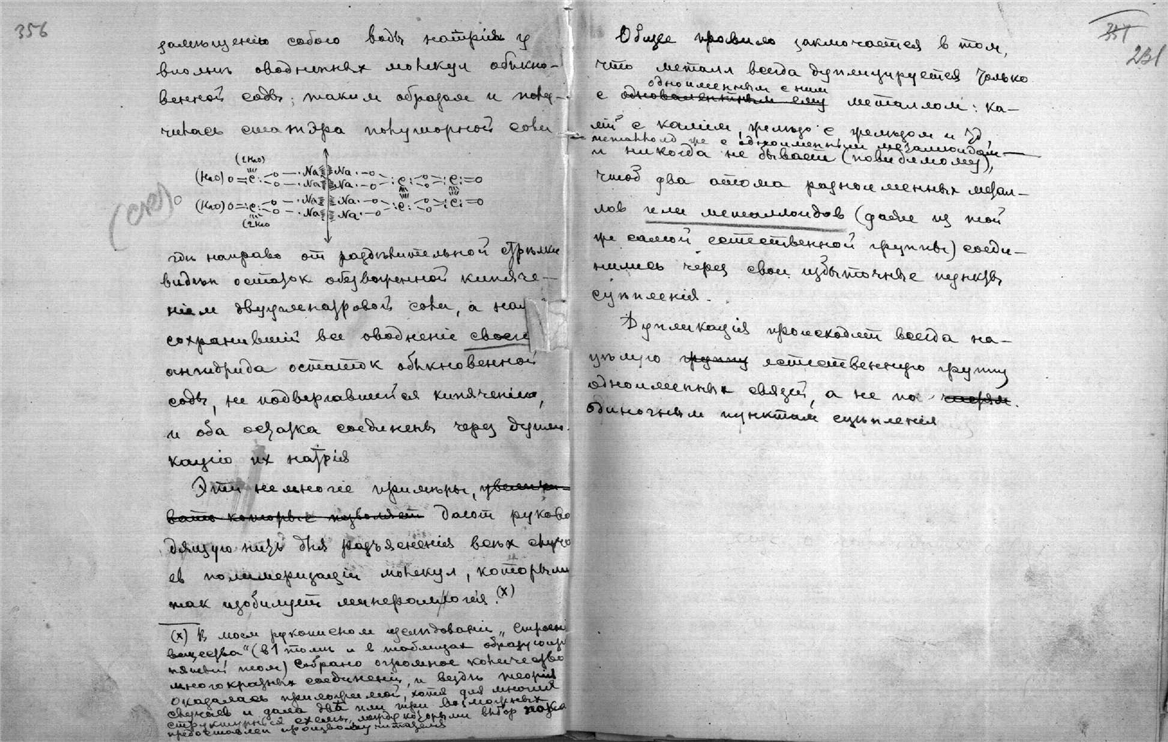 356
замѣщенію собою воды натрія у
вполнѣ оводненныхъ молекул обыкно-
венной соды; таким образом и полу-
чилась смѣтра полуторной соли
(H₂O)
(H₂O)=C O O Na Na O O C O C O
Na Na
(H₂O)=C O O Na Na O O C O C O
Na Na
(H₂O)
гдѣ направо от раздѣлительной стрѣлки
видѣн остаток обезвоженной кипяче-
ніем двууглекатровой соли, а нал
сохранившій все оводненіе своего
ангидрида остаток обыкновенной
соды, не подвергавшейся кипяченію,
и оба остатка соединены через дупли-
кацію их натрія
Эти немногіе примѣры,
которые позволяют дают руково
дящую нить для разъясненія всех случа
ев полимеризаціи молекул, которыми
так изобилует минералогія. (x)
(x) В моем рукописном изслѣдованіи „Строеніе
вещества" (в 1 томѣ и в таблицах образующих
пятый том) собрано огромное количество
многократных соединеній, и вездѣ теорія
оказалась примѣнимой, хотя для многих
случаев и дала двѣ или три возможных
структурных схемы, между которыми выбор пока
предоставлен произволу читателя
351
231
Общее правило заключается в том,
что металл всегда дуплицируется только
одноименным с ним
с одновалентным ему металлом: ка-
лій с каліем, желѣзо с желѣзом и т д
металлоид же с одноименным металлоидом
и никогда не бывает (повидимому),
чтоб два атома разноименных метал-
лов или металлоидов (даже из той
же самой естественной группы) соеди-
нились через свои избыточные пункты
сцѣпленія.
Дупликація происходит всегда на-
цѣлую группу естественную группу
одноименных связей, а не по частям
одиночным пунктам сцѣпленія